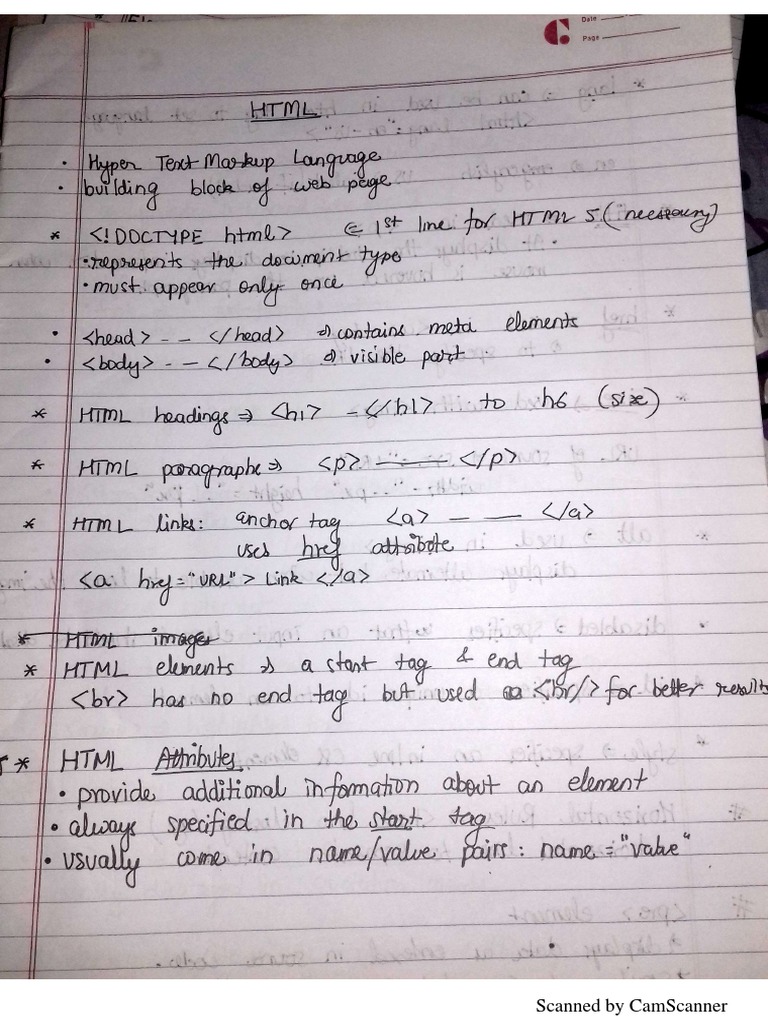 Date
Page
HTML
• Hyper Text Markup Language
• building block of web page
* <!DOCTYPE html> ∈ 1st line for HTML 5 (necessary)
• represents the document type
• must appear only once
• <head> - - </head> ⇒ contains meta elements
• <body> - - </body> ⇒ visible part
* HTML headings ⇒ <h1> - </h1> to h6 (size)
* HTML paragraphs ⇒ <p> ——— </p>
* HTML links: anchor tag <a> — — </a>
uses href attribute
<a href="URL"> Link </a>
* HTML images
* HTML elements ⇒ a start tag & end tag
<br> has no end tag but used <br/> for better results
* HTML Attributes
• provide additional information about an element
• always specified in the start tag
• usually come in name/value pairs: name = "value"
Scanned by CamScanner